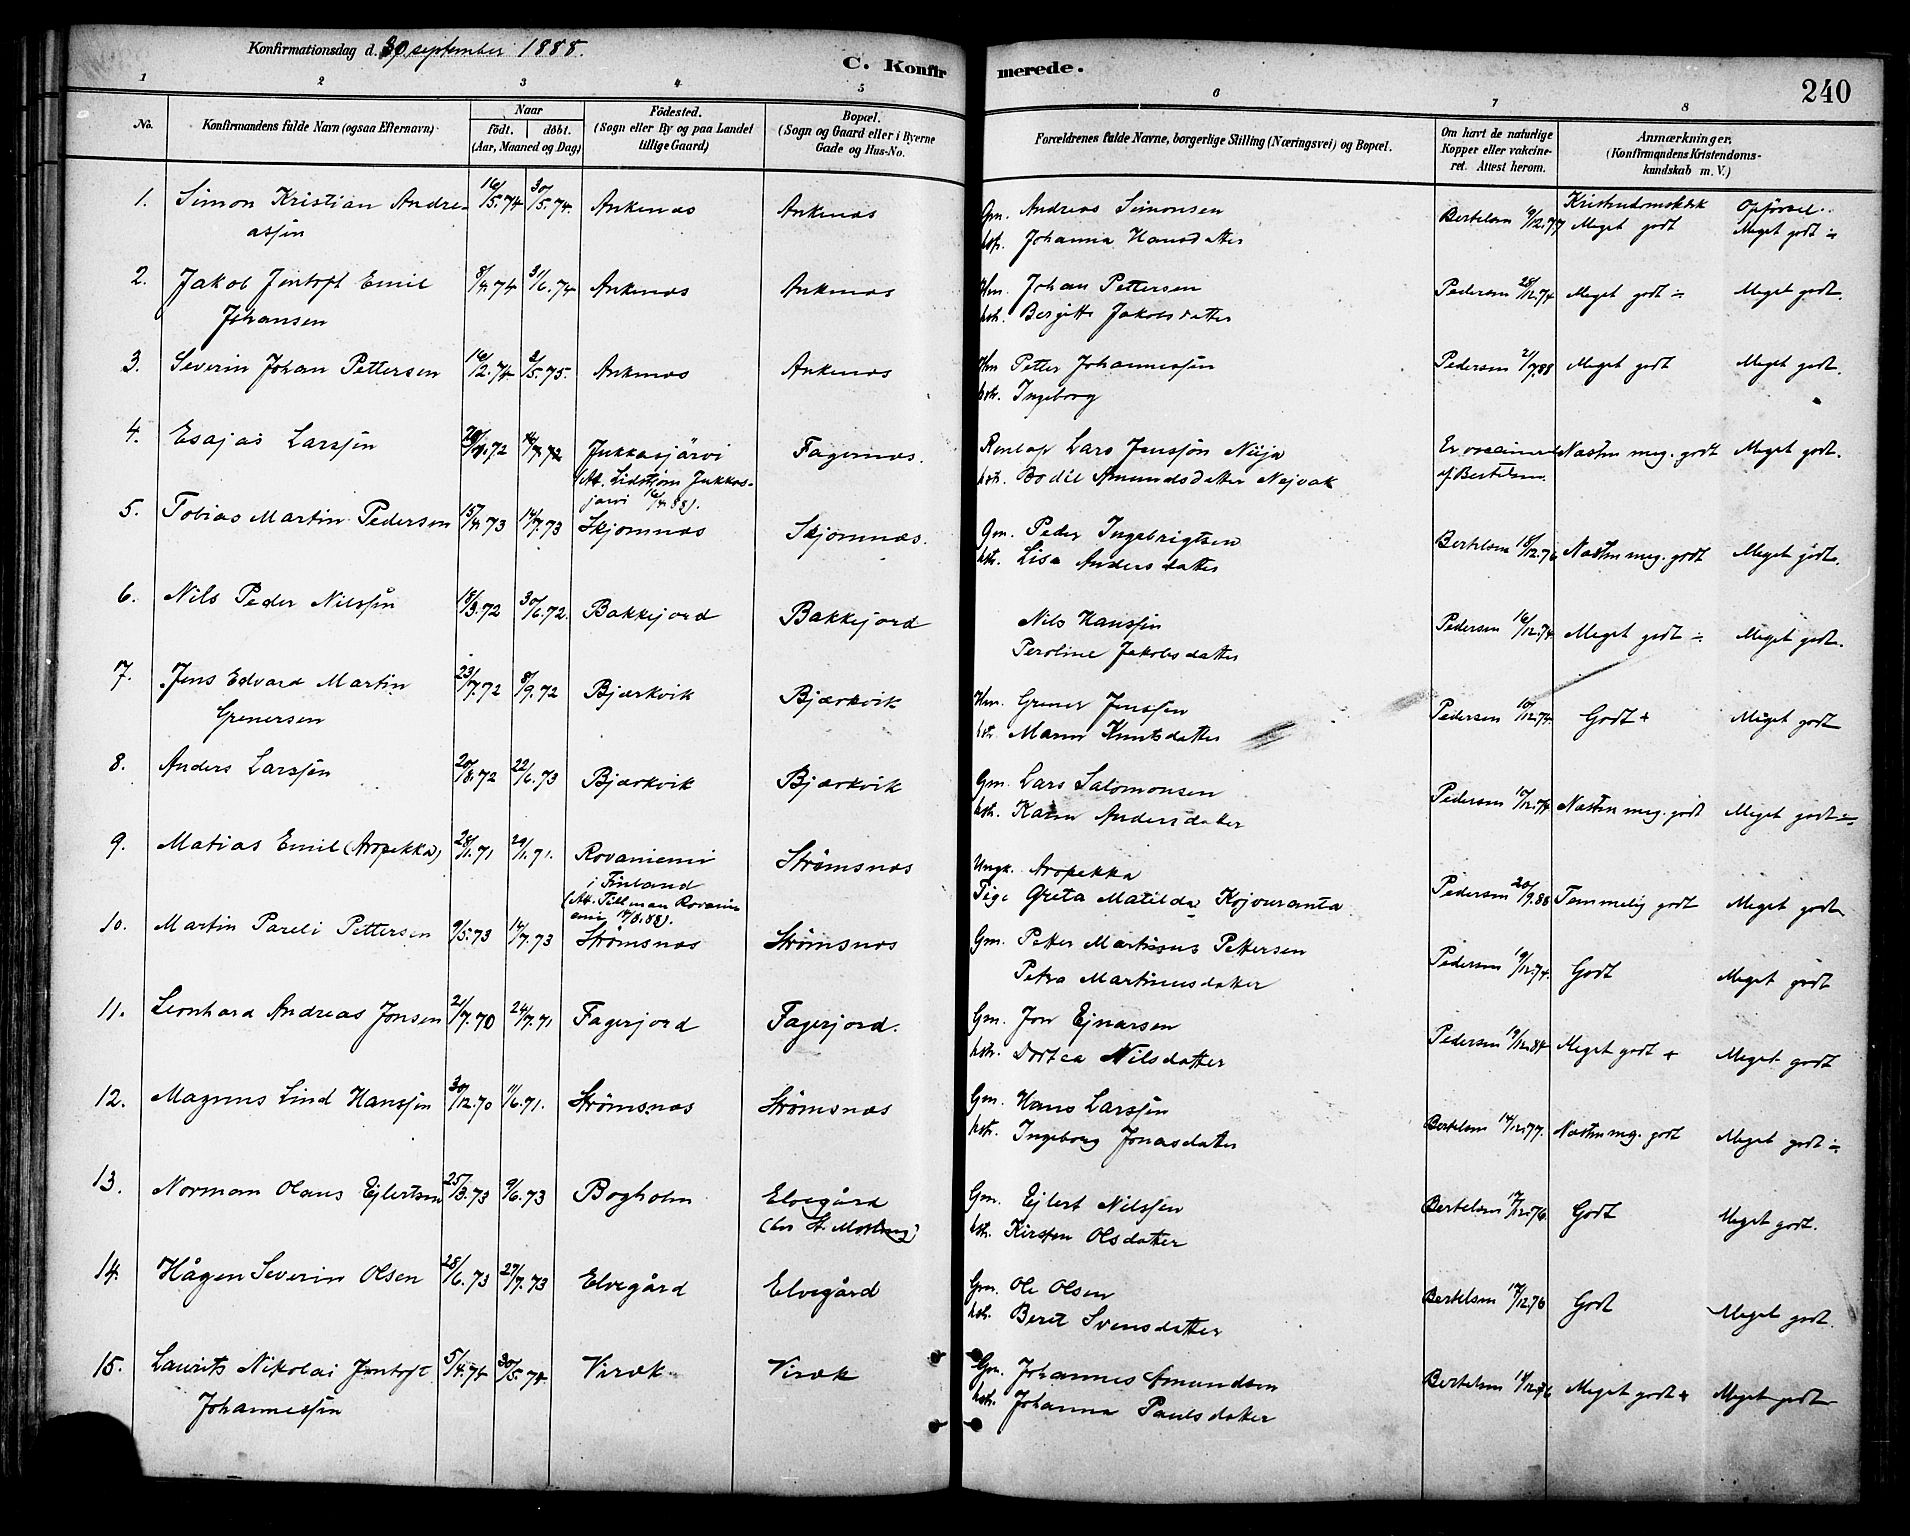 Konfirmationsdag d. 30 september 1888.
C. Konfirmerede.
240
1 2 3 4 5 6 7 8
No.
Konfirmandens fulde Navn (ogsaa Efternavn)
Naar
födt. döbt.
(Aar, Maaned og Dag)
Födested.
(Sogn eller By og paa Landet
tillige Gaard)
Bopæl.
(Sogn og Gaard eller i Byerne
Gade og Hus-No.
Forældrenes fulde Navne, borgerlige Stilling (Næringsvei) og Bopæl.
Om havt de naturlige
Kopper eller vakcine-
ret. Attest herom.
Anmærkninger.
(Konfirmandens Kristendoms-
kundskab m. V.)
Opförsel.
1. Simon Kristian Andre- 16/5.74 30/5.74. Ankenæs Ankenæs Gm. Andreas Simonsen Bertelsen 9/12.77 Meget godt Meget godt ÷
assen hst. Johanna Hansdatter
2. Jakob Jentoft Emil 8/4.74 31/6.74 Ankenæs Ankenæs Hm. Johan Pettersen Pedersen 28/12.74 Meget godt ÷ Meget godt.
Johansen hst. Bergitte Jakobsdatter
3. Severin Johan Pettersen 16/12.74 2/5.75. Ankenæs Ankenæs Hm Petter Johannessen Pedersen 2/7.88 Meget godt Meget godt.
hst. Ingeborg
4. Esajas Larssen Jukkasjärvi Fagernæs. Lars Jenssen Niija Er vaccineret Næsten meg. godt Meget godt.
(Att. Lidström Jukkas- hst. Bodil Amundsdatter Nejvak af Bertelsen.
järvi 16/4.88).
5. Tobias Martin Pedersen 15/4.73 14/7.73 Skjomnæs Skjomnæs. Gm. Peder Ingebrigtsen Bertelsen 18/12.76 Næsten meg. godt Meget godt.
hst. Lisa Andersdatter
6. Nils Peder Nilssen 18/3.72 30/6.72. Bakkejord Bakkejord Nils Hanssen Pedersen 16/12.74 Meget godt ÷ Meget godt.
Peroline Jakobsdatter
7. Jens Edvard Martin 23/7.72 8/9.72 Bjærkvik Bjærkvik Hm. Grener Jenssen Pedersen 10/12.74 Godt + Meget godt
Grenersen hst. Maren Knutsdatter
8. Anders Larssen 20/8.72 22/6.73 Bjærkvik Bjærkvik Gm. Lars Salomonsen Pedersen 17/12.74 Næsten meg. godt Meget godt ÷
hst. Karen Andersdatter
9. Matias Emil (Aropekka) 28/1.71 29/1.71. Rovaniemi Strømsnæs Ungk. Aropekka Pedersen 20/9.88 Temmelig godt Meget godt
i Finland Pige Greta Matilda Kojouranta
(Att. Tillman Rovani-
emi 14/8.88).
10. Martin Pareli Pettersen 9/5.73 14/7.73 Strømsnæs Strømsnæs Gm. Petter Martinus Pettersen Pedersen 19/12.74. Godt Meget godt
Petra Martinusdatter
11. Leonhard Andreas Jonsen 21/7.70 24/7.71 Fagerjord Fagerjord. Gm. Jon Ejnarsen Pedersen 19/12.84 Meget godt + Meget godt
hst. Dortea Nilsdatter
12. Magnus Lind Hanssen 30/12.70 11/6.71. Strømsnæs Strømsnæs Gm. Hans Larssen Bertelsen 14/12.77. Næsten meg. godt Meget godt ÷
hst. Ingeborg Jonasdatter
13. Norman Olaus Ejlertsen 25/3.73 9/6.73 Bogholm Elvegård Gm. Ejlert Nilssen Bertelsen 17/12.76 Godt Meget godt.
hst. Kirsten Olsdatter
14. Hågen Severin Olsen 28/6.73 27/7.73 Elvegård Elvegård Gm. Ole Olsen Bertelsen 17/12.76 Godt Meget godt.
hst. Beret Svensdatter
15. Laurits Nikolai Jentoft 5/4.74 30/5.74 Virek Virek Gm. Johannes Amundsen Bertelsen Meget godt + Meget godt
Johannessen hst. Johanna Paulsdatter